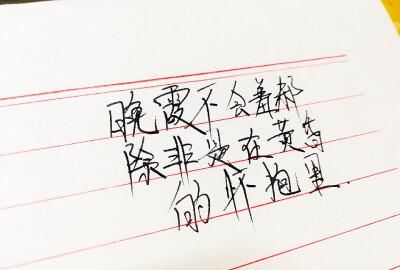 晚霞不会羞
除非是在黄昏
的怀抱里.